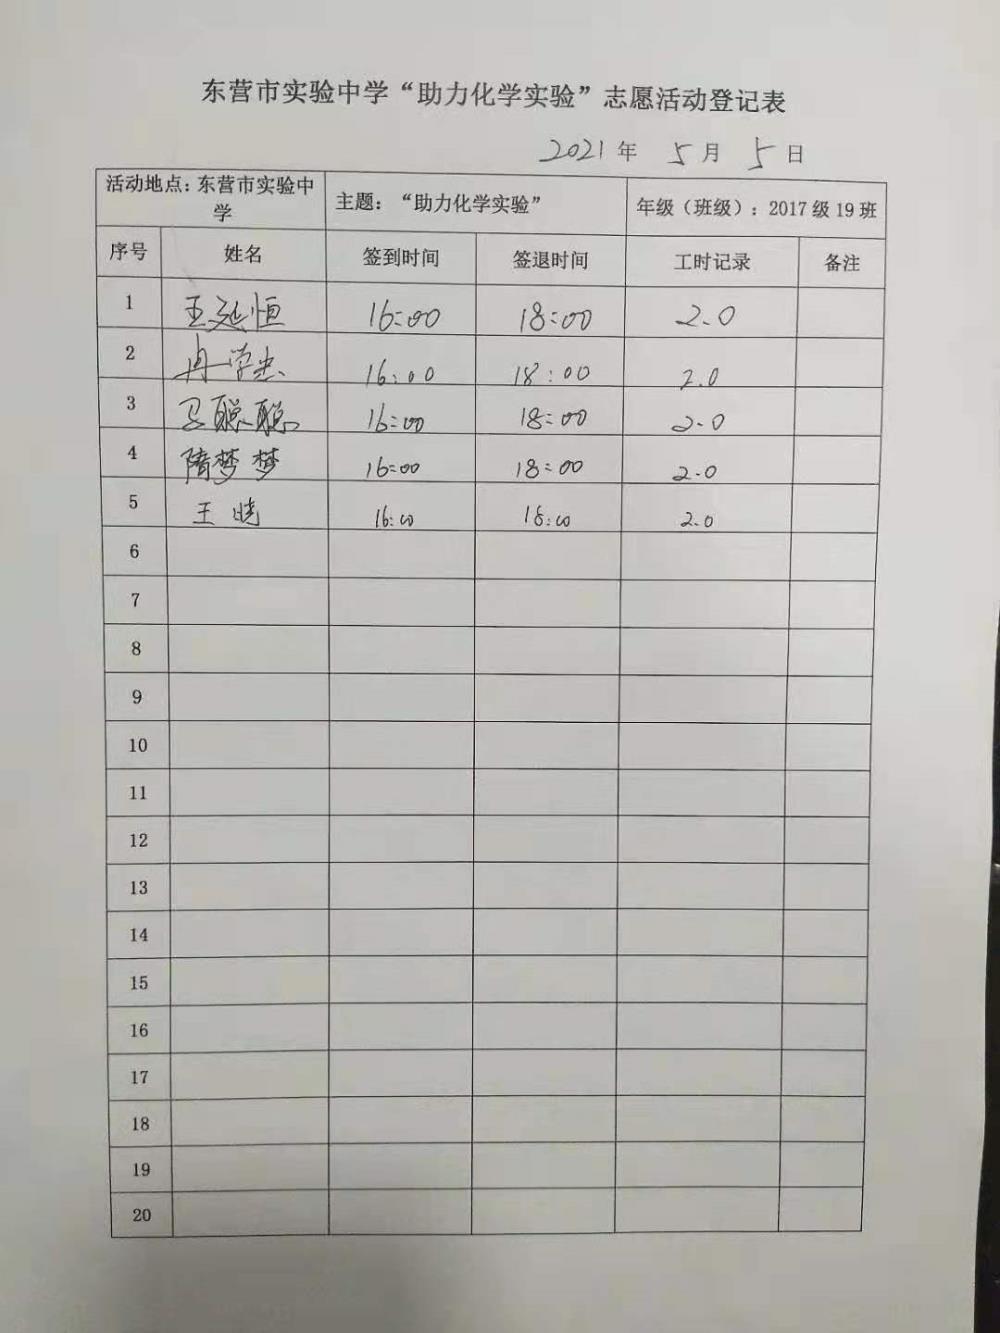 东营市实验中学“助力化学实验”志愿活动登记表
2021年 5月 5日
活动地点：东营市实验中学 主题：“助力化学实验” 年级（班级）：2017级19班
序号 姓名 签到时间 签退时间 工时记录 备注
1 王延恒 16:00 18:00 2.0
2 冉学忠 16:00 18:00 2.0
3 马聪聪 16:00 18:00 2.0
4 隋梦梦 16:00 18:00 2.0
5 王晓 16:00 18:00 2.0
6
7
8
9
10
11
12
13
14
15
16
17
18
19
20